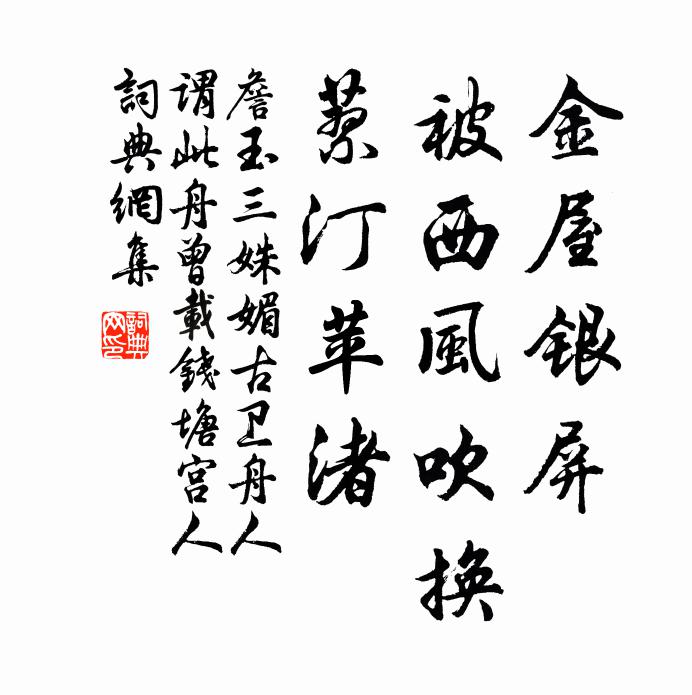 金屋銀屏
被西風吹換
蓼汀苹渚
詹玉三姝媚古卫舟人
謂此舟曾載錢塘宮人
詞典網集
詞典
网印